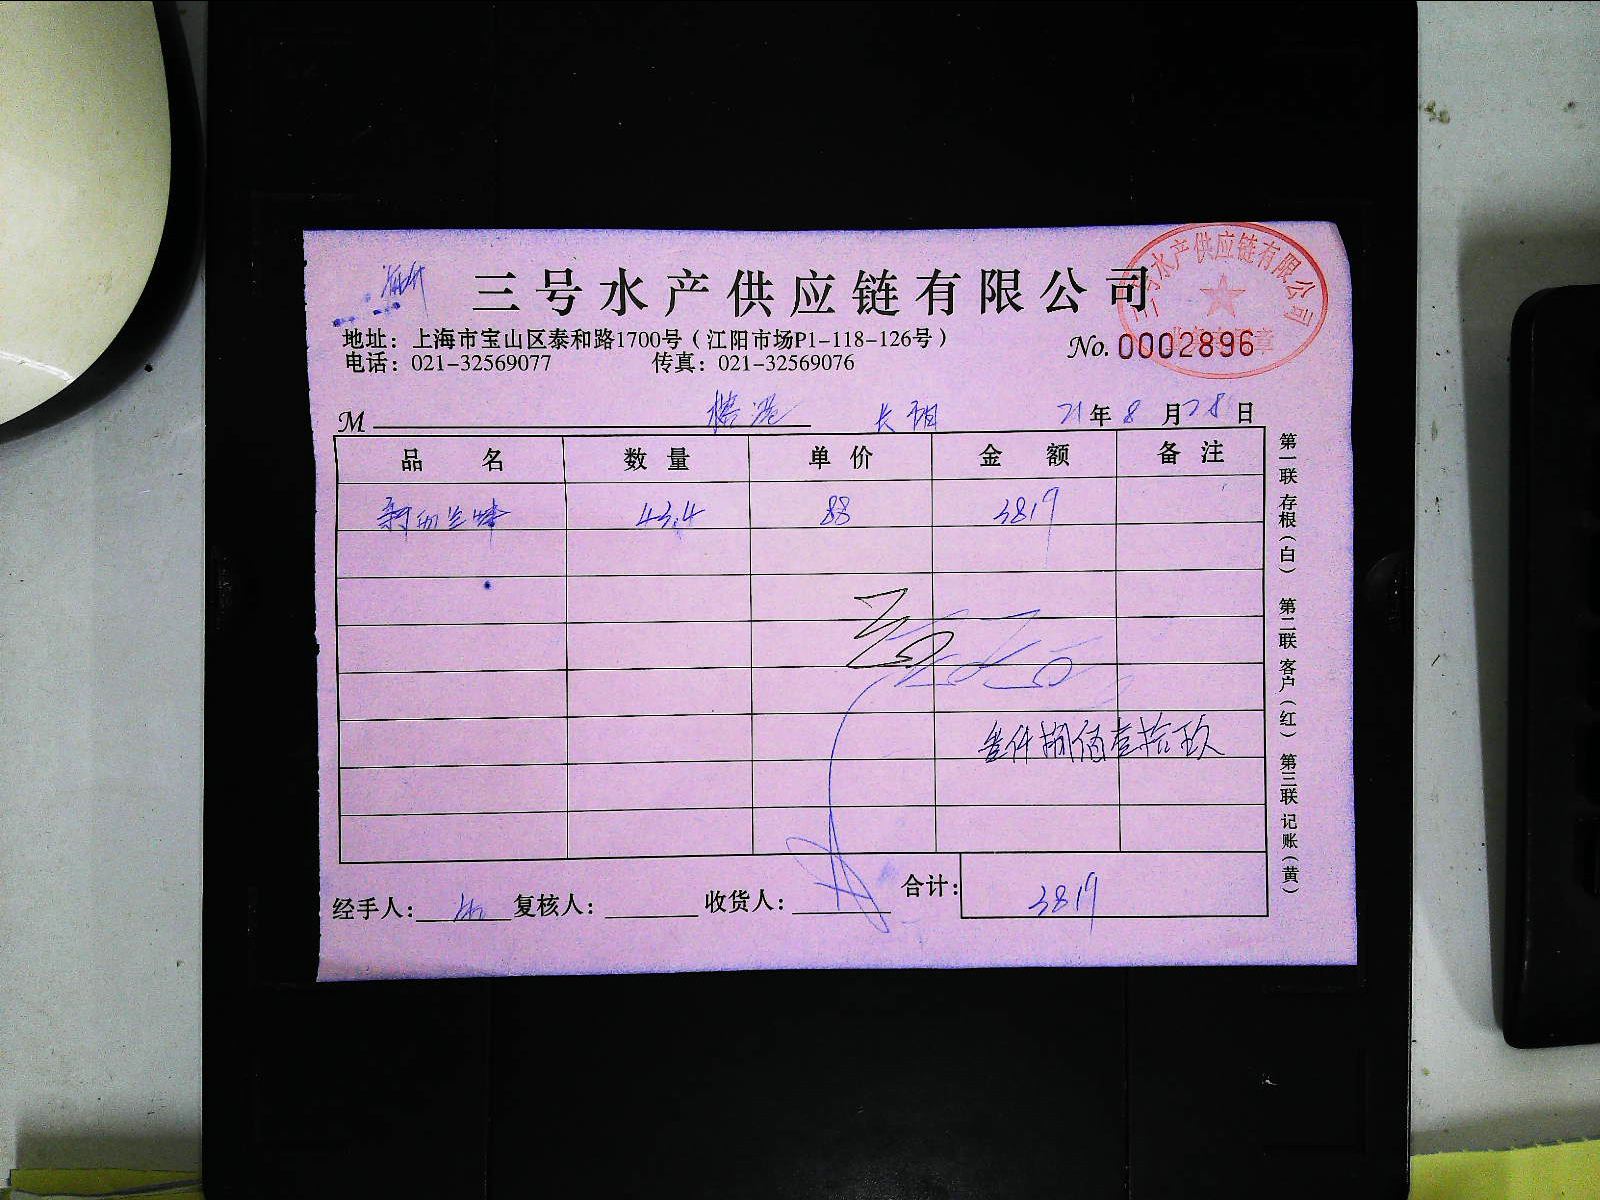 三号水产供应链有限公司
三号水产供应链有限公司
地址：上海市宝山区泰和路1700号（江阳市场P1-118-126号）
No. 0002896
电话：021-32569077 传真：021-32569076
M 21年8月28日
品名 数量 单价 金额 备注
43.4 88 3819
叁仟捌佰壹拾玖
合计：3819
经手人： 复核人： 收货人：
第一联 存根（白） 第二联 客户（红） 第三联 记账（黄）